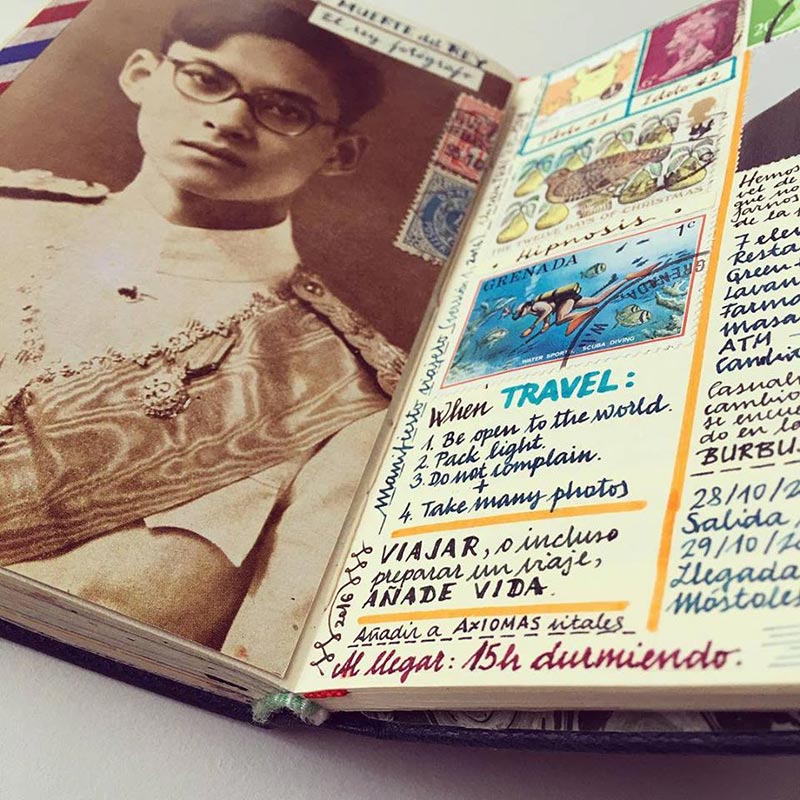 MUERTE del REY
El rey fotógrafo
Ídolo #1
Ídolo #2
THE TWELVE DAYS OF CHRISTMAS
Hipnosis.
GRENADA 1c
GRENADA
WATER SPORTS, SCUBA DIVING
Manifiesto viajero
When TRAVEL:
1. Be open to the world.
2. Pack light.
3. Do not complain.
+
4. Take many photos
VIAJAR, o incluso
preparar un viaje,
AÑADE VIDA.
2016
Añadir a AXIOMAS vitales
Al llegar: 15h durmiendo.
Hemos
que no
de la
7 elev
Resta
Green
Lavan
Farma
Masa
ATM
Casual
cambio
se encue
do en la
BURBU
28/10/20
Salida
29/10/20
Llegada
Móstoles